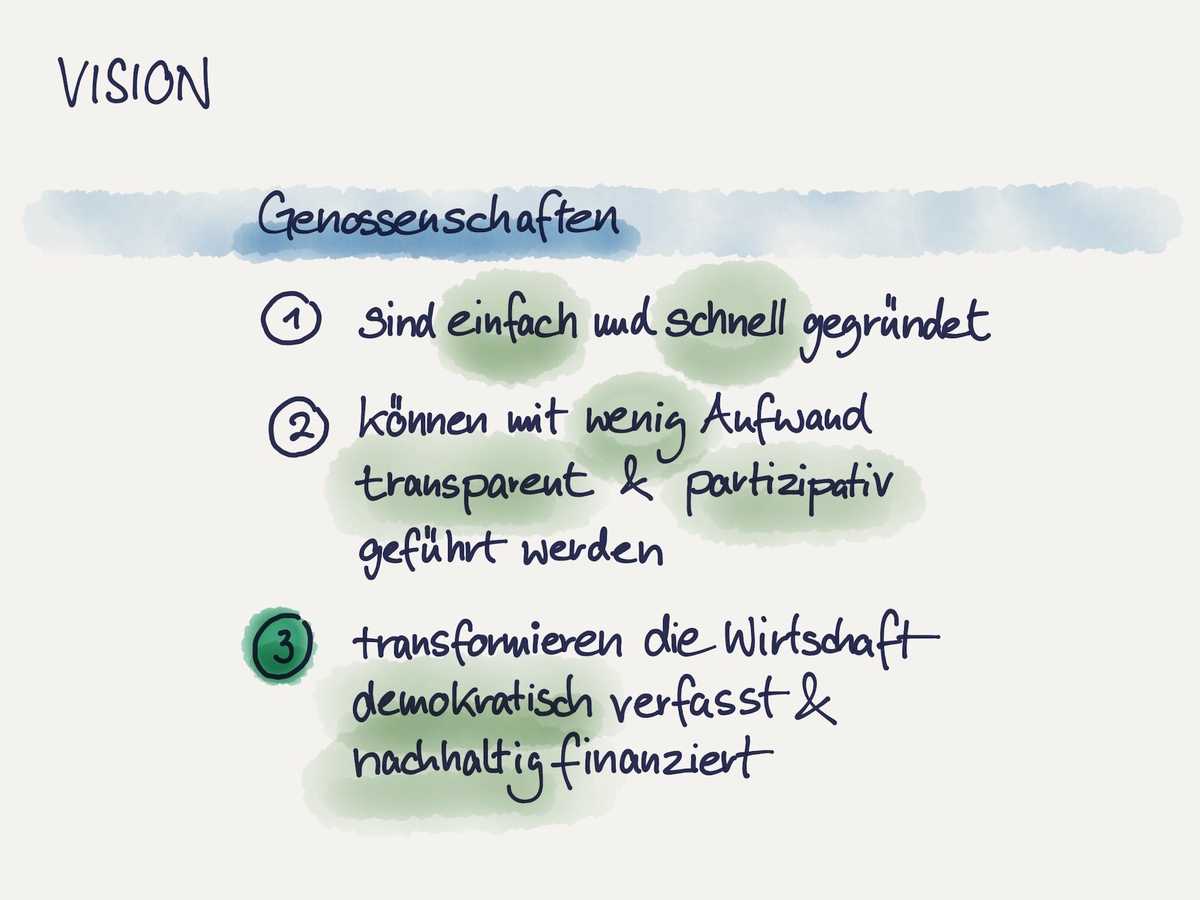 VISION
Genossenschaften
1 sind einfach und schnell gegründet
2 können mit wenig Aufwand
transparent & partizipativ
geführt werden
3 transformieren die Wirtschaft
demokratisch verfasst &
nachhaltig finanziert